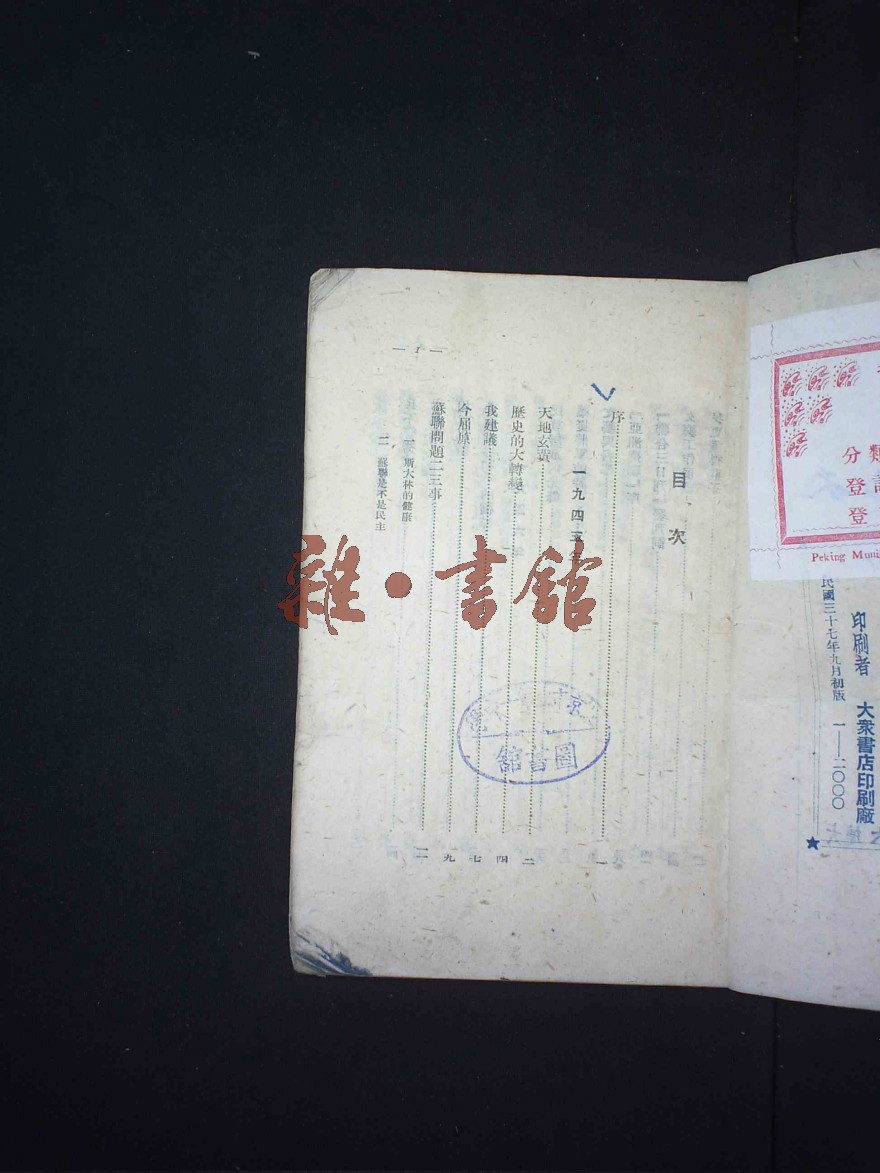 分類
登記
登
Peking Muni
印刷者 大衆書店印刷廠
民國三十七年九月初版 一—二〇〇〇
目次
序 一
一九四五年
天地玄黃 二
歷史的大轉變 四
我建議 七
今屈原 九
蘇聯問題二三事 二
一 斯大林的健康
二 蘇聯是不是民主
— 1 —
圖書館
雜·書館